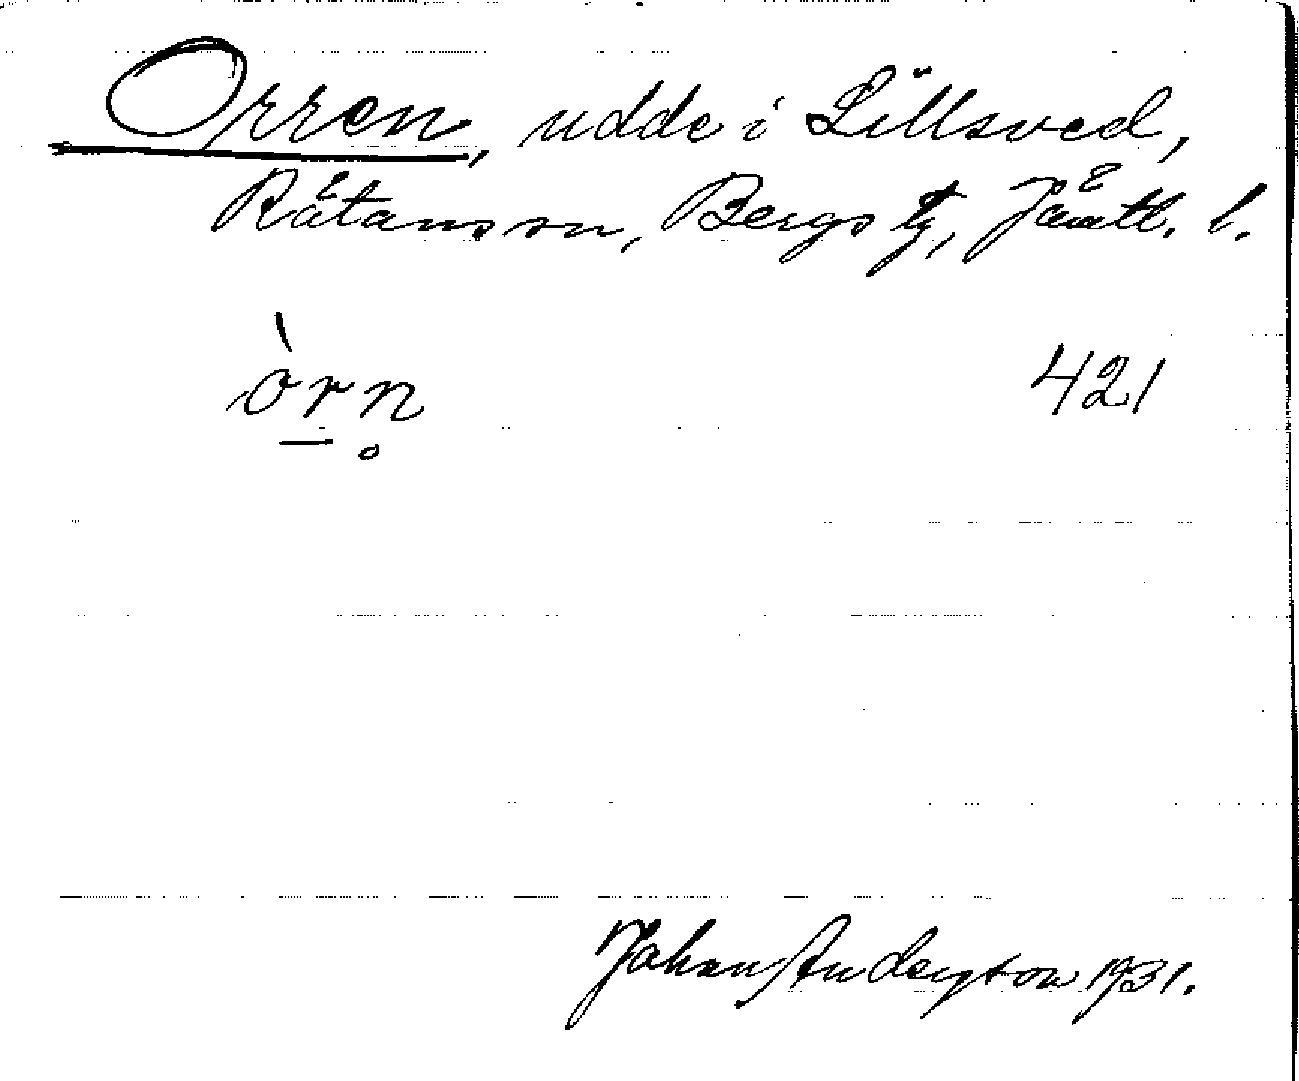 Orren, udde i Lillsved,
Råtans sn, Bergs tg, Jämtl. l.
òrn̥ 421
Johan Anderson 1931.